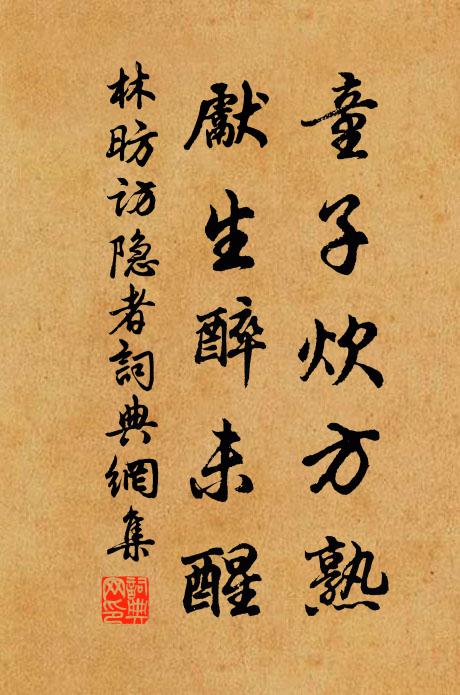 童子炊方熟
獻生醉未醒
林昉访隐者詞典網集
詞典網印